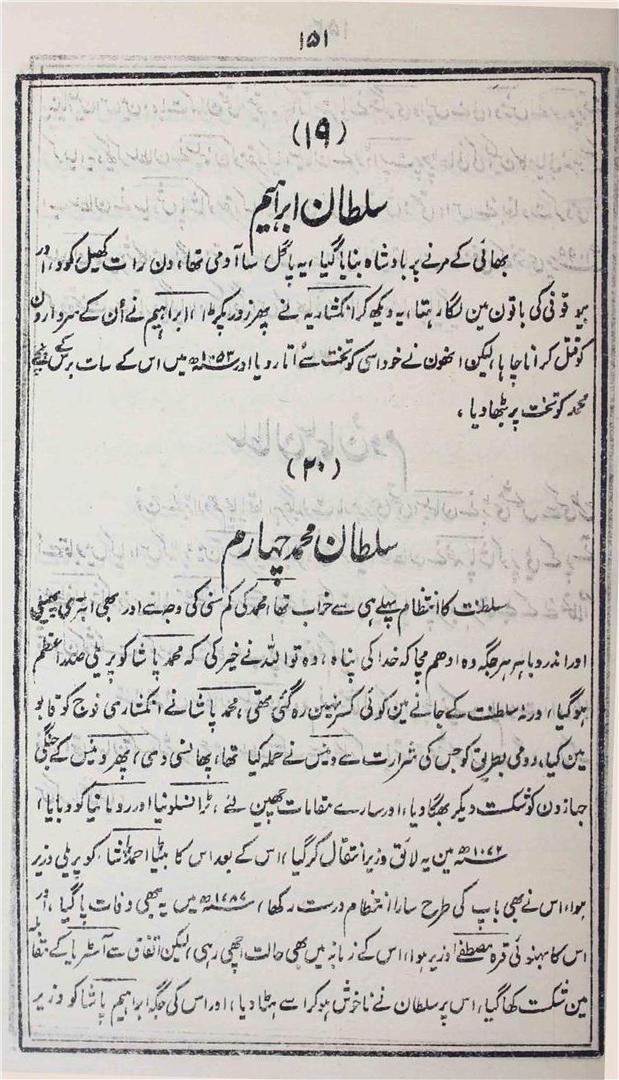 ۱۵۱
(۱۹)
سلطان ابراہیم
بھائی کے مرنے پر بادشاہ بنایا گیا، یہ پاگل سا آدمی تھا، دن رات کھیل کود، اور
بیوقوفی کی باتون مین لگا رہتا، یہ دیکھ کر انکشاریہ نے پھر زور پکڑا، ابراہیم نے اُن کے سردارون
کو قتل کرانا چاہا لیکن انھون نے خود اسی کو تخت سے اُتار دیا اور ۱۰۵۳ھ مین اس کے سات برس کے بچے
محمد کو تخت پر بٹھا دیا،
(۲۰)
سلطان محمد چہارم
سلطنت کا انتظام پہلے ہی سے خراب تھا، محمد کی کم سنی کی وجہ سے اور بھی ابتری پھیلی
اور اندر و باہر ہر جگہ وہ اودھم مچا کہ خدا کی پناہ، وہ تو اللہ نے خیر کی کہ محمد پاشا کوپریلی صدر اعظم
ہو گیا، ورنہ سلطنت کے جانے مین کوئی کسر نہین رہ گئی تھی، محمد پاشا نے انکشاری فوج کو قابو
مین کیا، رومی بطریق کو جس کی شرارت سے وینس نے حملہ کیا تھا، پھانسی دی، پھر وینس کے جنگی
جہازون کو شکست دیکر بھگا دیا، اور سارے مقامات چھین لئے، ٹرانسلونیا اور رومانیا کو دبایا،
۱۰۷۲ھ مین یہ لائق وزیر انتقال کر گیا، اس کے بعد اس کا بیٹا احمد پاشا کوپریلی وزیر
ہوا، اس نے بھی باپ کی طرح سارا انتظام درست رکھا، ۱۰۸۷ھ مین یہ بھی وفات پا گیا، اور
اس کا بہنوئی قرہ مصطفےٰ وزیر ہوا، اس کے زمانہ مین بھی حالت اچھی رہی، لیکن اتفاق سے آسٹریا کے مقابلہ
مین شکست کھا گیا، اس پر سلطان نے ناخوش ہو کر اسے ہٹا دیا، اور اس کی جگہ ابراہیم پاشا کو وزیر